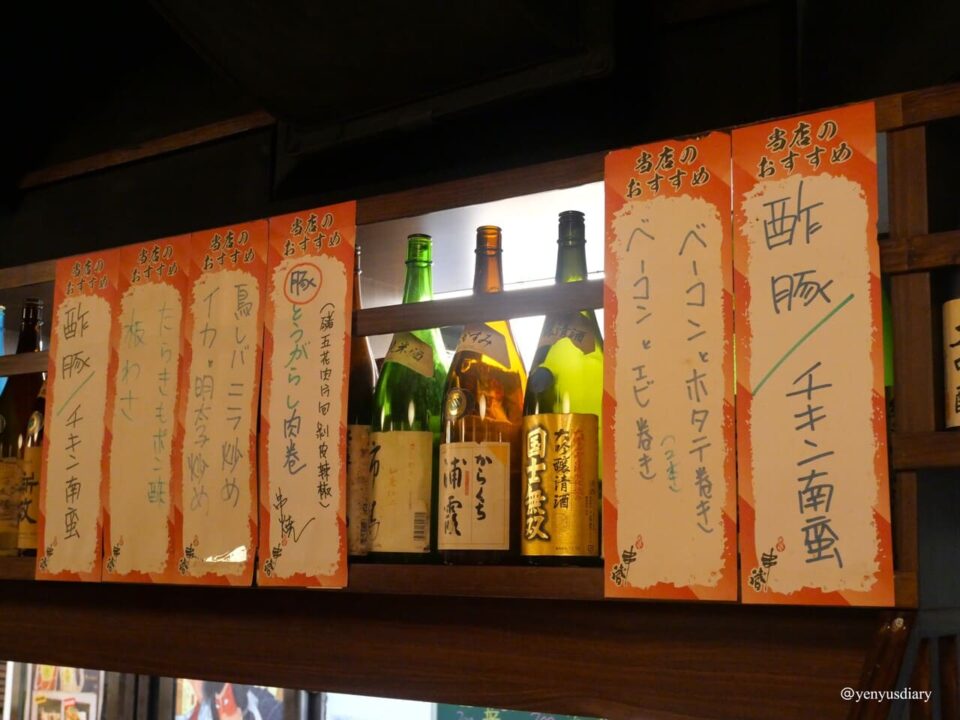 当店の
おすすめ
酢豚/チキン南蛮
当店の
おすすめ
たらきもポン酢
板わさ
当店の
おすすめ
鳥レバニラ炒め
イカと明太子炒め
当店の
おすすめ
豚とうがらし肉巻
串焼
当店の
おすすめ
ベーコンとホタテ巻き
(つまき)
ベーコンとエビ巻き
当店の
おすすめ
酢豚/チキン南蛮
からくち
浦霞
大吟醸清酒
国士無双
米酒
@yenyusdiary